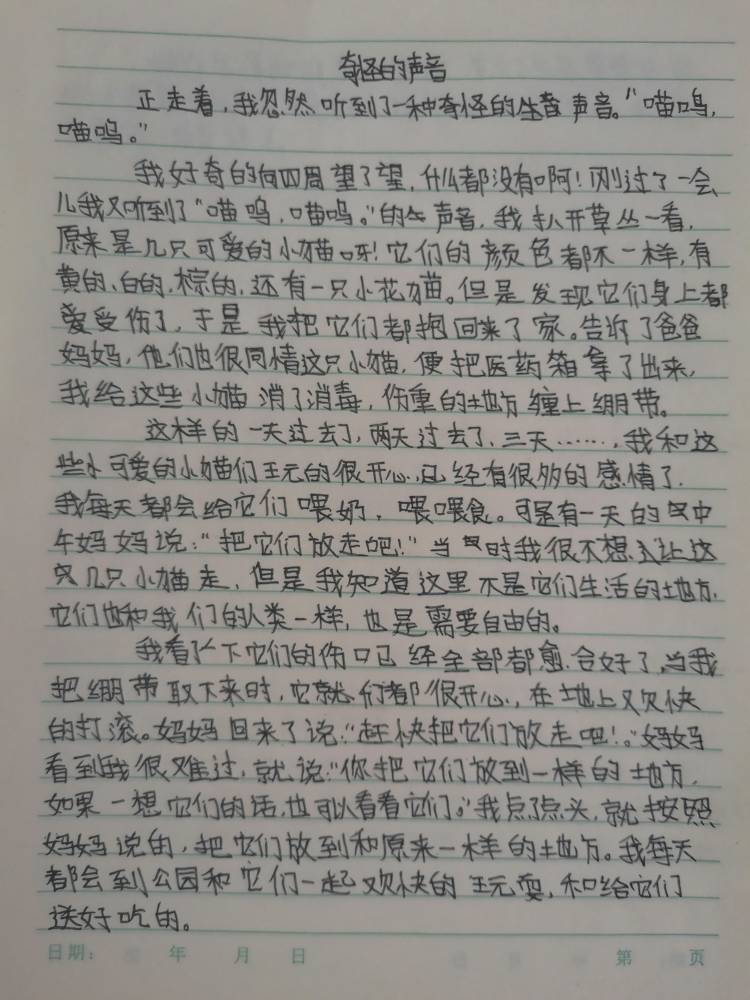 奇怪的声音
正走着,我忽然听到了一种奇怪的声音。“喵呜,
喵呜。”
我好奇的向四周望了望,什么都没有啊!刚过了一会
儿我又听到了“喵呜,喵呜。”的声音,我扒开草丛一看,
原来是几只可爱的小猫呀!它们的颜色都不一样,有
黄的、白的、棕的,还有一只小花猫。但是发现它们身上都
受伤了,于是我把它们都抱回来了家。告诉了爸爸
妈妈,他们也很同情这只小猫,便把医药箱拿了出来,
我给这些小猫消了消毒,伤重的地方缠上绷带。
这样的一天过去了,两天过去了、三天……,我和这
些小可爱的小猫们玩的很开心,已经有很多的感情了.
我每天都会给它们喂奶,喂喂食。可是有一天的中
午妈妈说:“把它们放走吧!”当时我很不想让这
几只小猫走,但是我知道这里不是它们生活的地方,
它们也和我们的人类一样,也是需要自由的。
我看了下它们的伤口已经全部都愈合好了,当我
把绷带取下来时,它们都很开心,在地上欢快
的打滚。妈妈回来了说:“赶快把它们放走吧!。”妈妈
看到我很难过,就说:“你把它们放到一样的地方,
如果一想它们的话,也可以看看它们。”我点了点头,就按照
妈妈说的,把它们放到和原来一样的地方。我每天
都会到公园和它们一起欢快的玩耍,和给它们
送好吃的。
日期: 年 月 日 第 页